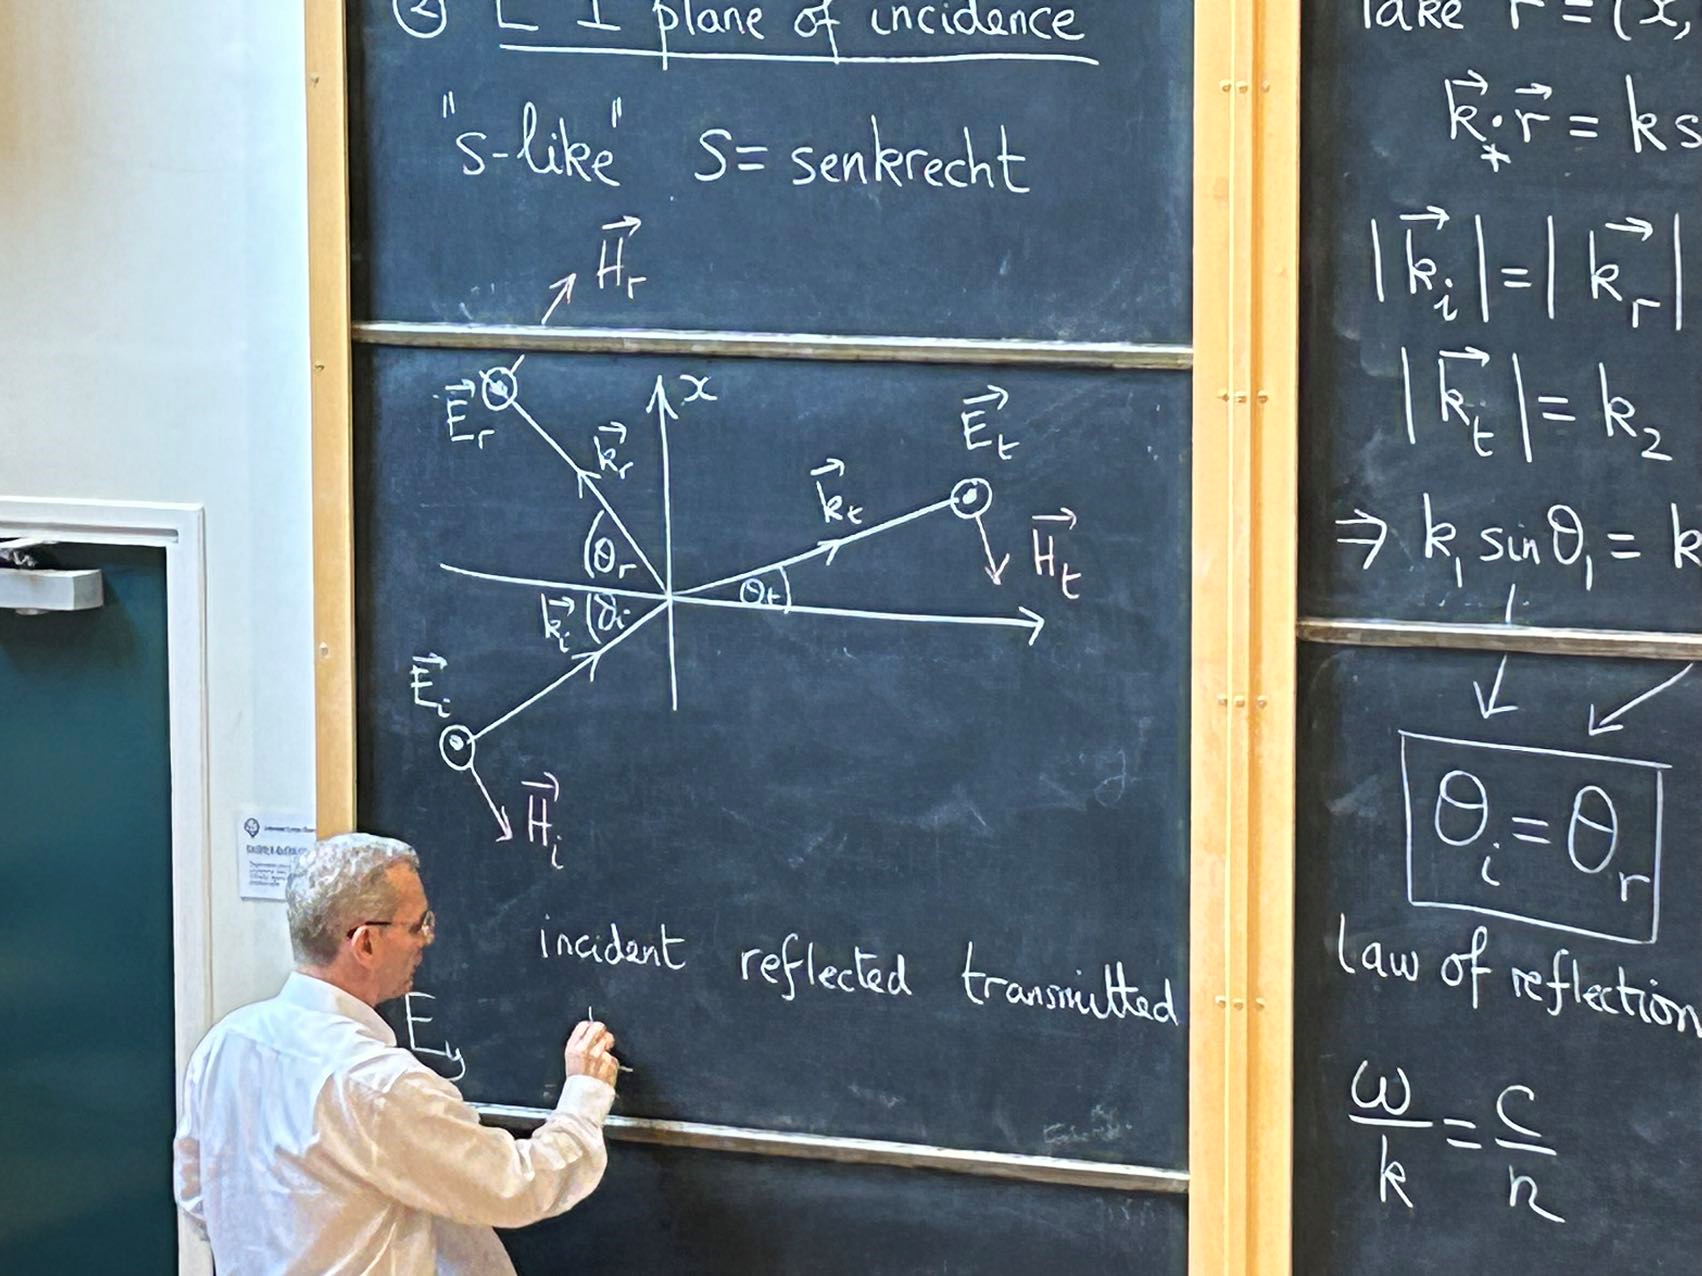 ② E ⊥ plane of incidence
"s-like" S = senkrecht
H⃗r
E⃗r
k⃗r
x
E⃗t
k⃗t
H⃗t
θr
θt
k⃗i θi
E⃗i
H⃗i
incident reflected transmitted
Ey
Take r = (x,
k⃗·r⃗ = k s
*
|k⃗i| = |k⃗r|
|k⃗t| = k2
⇒ k1 sinθ1 = k
θi = θr
law of reflection
ω/k = c/n